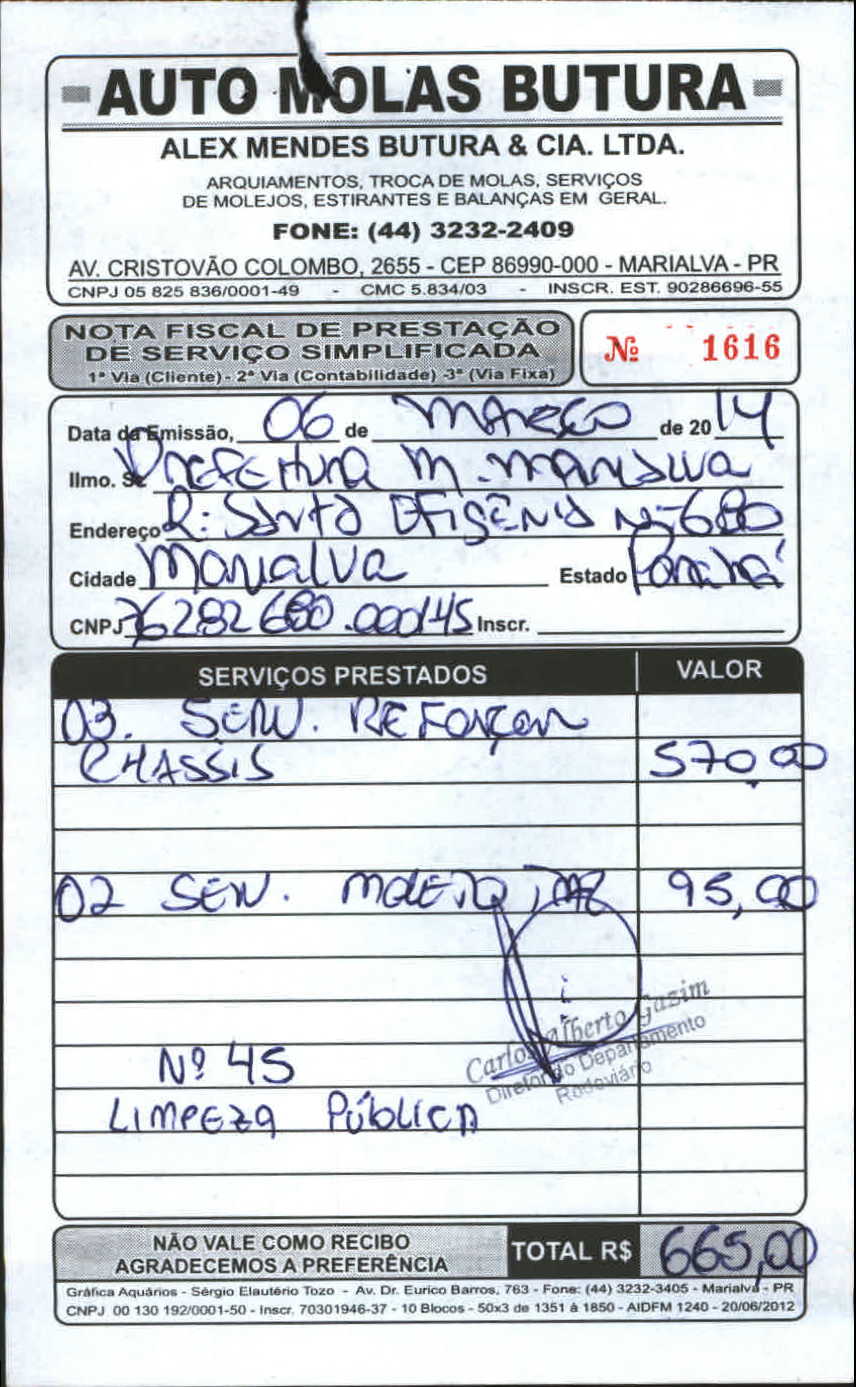 AUTO MOLAS BUTURA
ALEX MENDES BUTURA & CIA. LTDA.
ARQUIAMENTOS, TROCA DE MOLAS, SERVIÇOS
DE MOLEJOS, ESTIRANTES E BALANÇAS EM GERAL.
FONE: (44) 3232-2409
AV. CRISTOVÃO COLOMBO, 2655 - CEP 86990-000 - MARIALVA - PR
CNPJ 05 825 836/0001-49 - CMC 5.834/03 - INSCR. EST. 90286696-55
NOTA FISCAL DE PRESTAÇÃO
DE SERVIÇO SIMPLIFICADA
1ª Via (Cliente) - 2ª Via (Contabilidade) - 3ª (Via Fixa)
Nº 1616
Data da Emissão, 06 de MARÇO de 2014
Ilmo. Sr. Prefeitura M. Marialva
Endereço R: Santa Efigênia Nº 680
Cidade Marialva Estado Paraná
CNPJ 76282680.000145 Inscr.
SERVIÇOS PRESTADOS VALOR
03. SERV. REFORÇAR
CHASSIS 570,00
02 SERV. MOLEJO 95,00
Carlos Alberto Gazim
Diretor do Departamento
Rodoviário
Nº 45
LIMPEZA PÚBLICA
NÃO VALE COMO RECIBO
AGRADECEMOS A PREFERÊNCIA
TOTAL R$ 665,00
Gráfica Aquários - Sérgio Elautério Tozo - Av. Dr. Eurico Barros, 763 - Fone: (44) 3232-3405 - Marialva - PR
CNPJ 00 130 192/0001-50 - Inscr. 70301946-37 - 10 Blocos - 50x3 de 1351 à 1850 - AIDFM 1240 - 20/06/2012